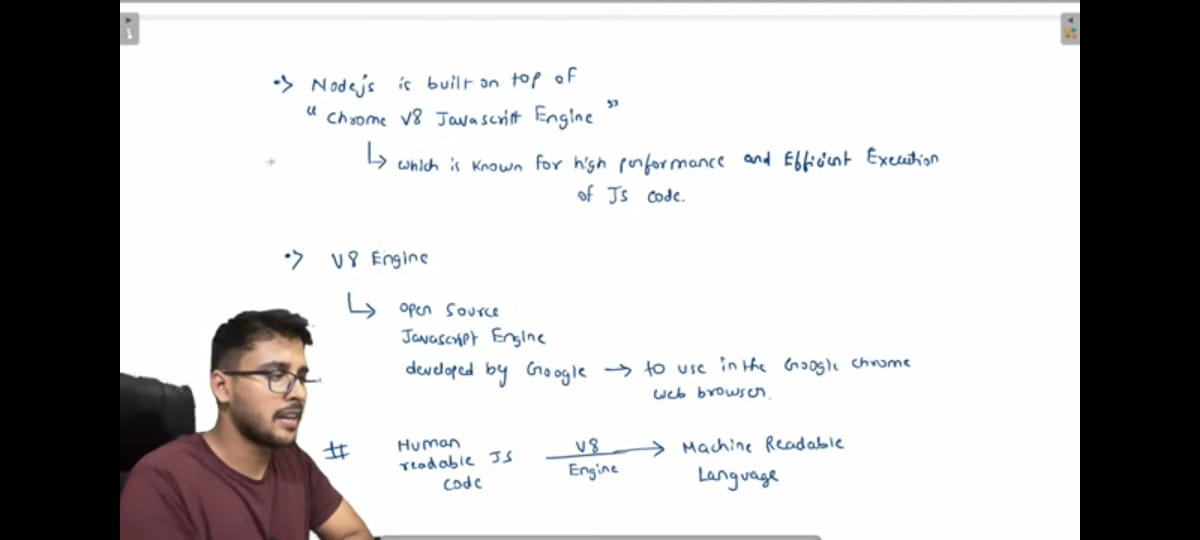 •> Nodejs is built on top of
" Chrome V8 Javascript Engine "
↳ which is known for high performance and Efficient Execution
of Js code.
•> V8 Engine
↳ open source
Javascript Engine
developed by Google → to use in the Google chrome
web browser.
# Human
readable JS
code
V8
Engine
→ Machine Readable
Language